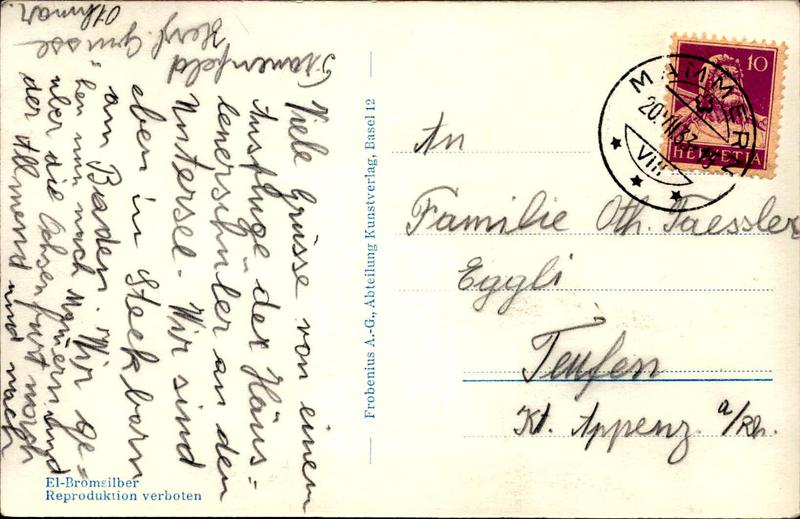 Viele Grüsse von einem
Ausfluge der Häus=
lenerschüler an den
Untersee. Wir sind
eben in Steckborn
am Baden. Wir ge=
hen nun nach Mamern und
über die Ochsenfurt nach
der Allmend und nach
Frauenfeld
Herzl. Grüsse
Othmar.
El-Bromsilber
Reproduktion verboten
Frobenius A.-G., Abteilung Kunstverlag, Basel 12
10
HELVETIA
MAMMERN
VIII
An
Familie Oth. Taessler
Eggli
Teufen
Kt. Appenz. a/Rh.